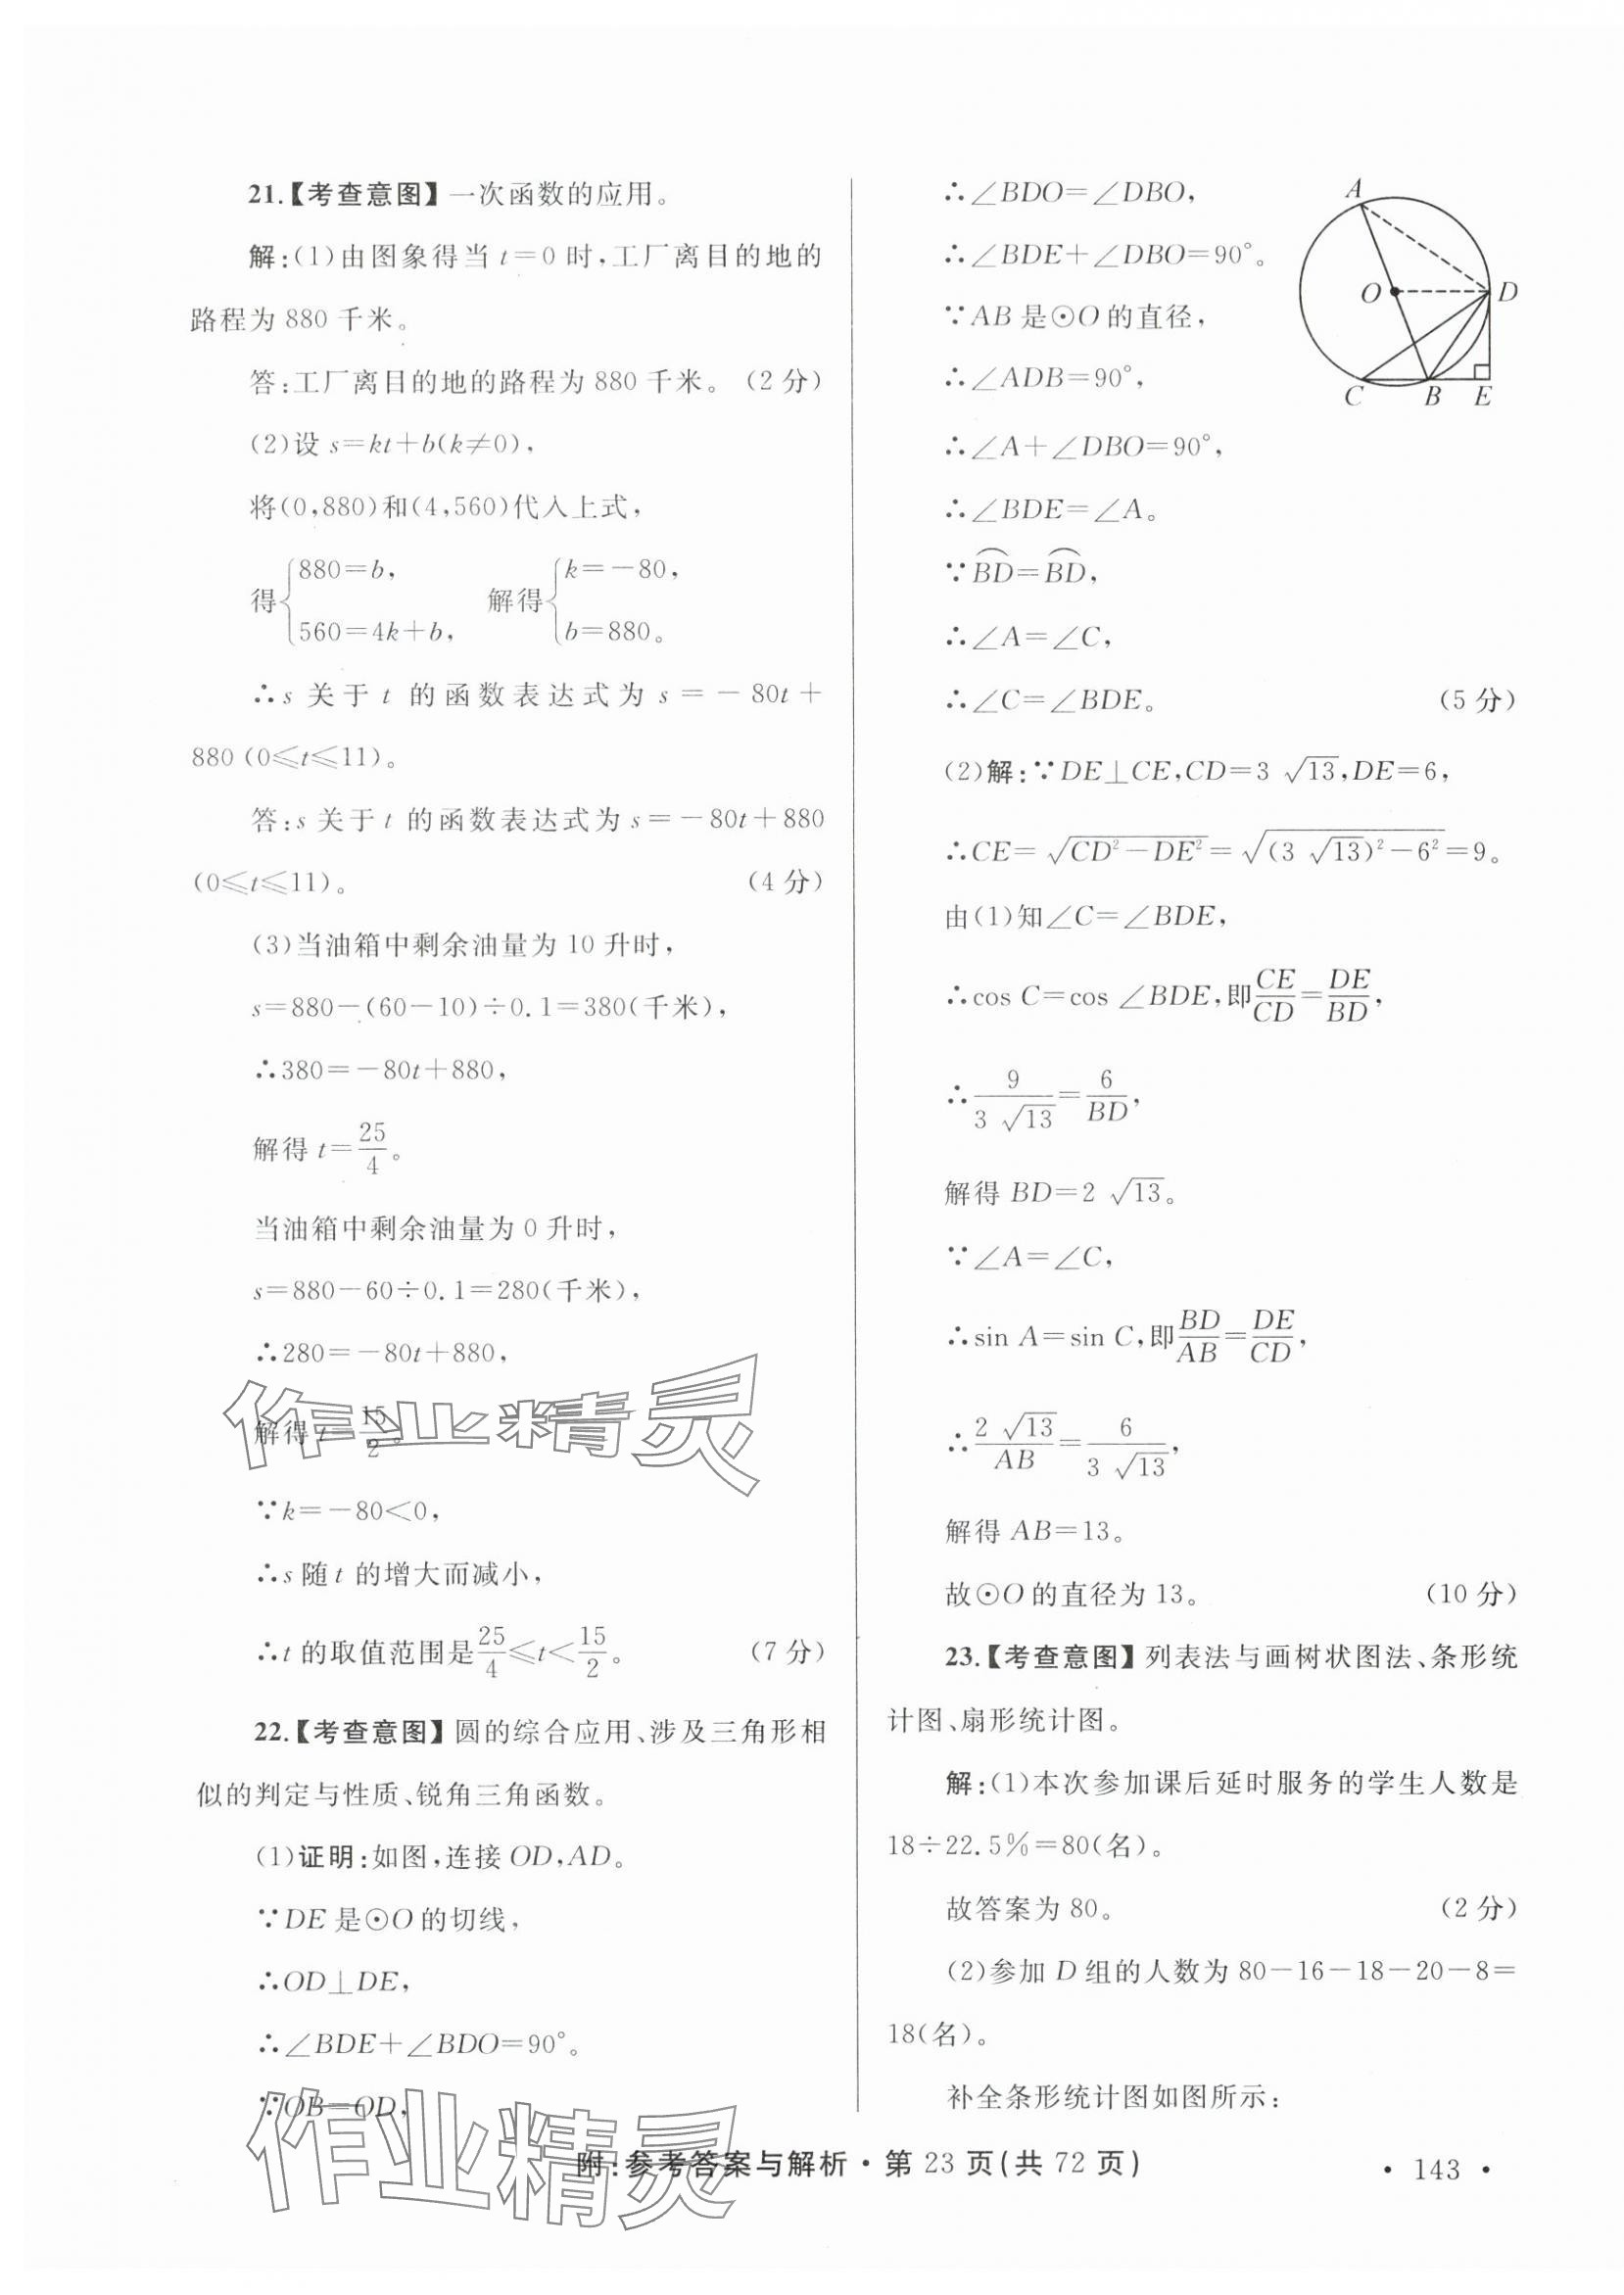 21.【考查意图】一次函数的应用。
解:(1)由图象得当 t=0 时,工厂离目的地的
路程为 880 千米。
答:工厂离目的地的路程为 880 千米。(2 分)
(2)设 s=kt+b(k≠0),
将(0,880)和(4,560)代入上式,
得{880=b, 560=4k+b, 解得{k=-80, b=880。
∴s 关于 t 的函数表达式为 s=-80t+
880(0≤t≤11)。
答:s 关于 t 的函数表达式为 s=-80t+880
(0≤t≤11)。 (4 分)
(3)当油箱中剩余油量为 10 升时,
s=880-(60-10)÷0.1=380(千米),
∴380=-80t+880,
解得 t=25/4。
当油箱中剩余油量为 0 升时,
s=880-60÷0.1=280(千米),
∴280=-80t+880,
解得 t=15/2。
∵k=-80<0,
∴s 随 t 的增大而减小,
∴t 的取值范围是25/4≤t<15/2。 (7 分)
22.【考查意图】圆的综合应用、涉及三角形相
似的判定与性质、锐角三角函数。
(1)证明:如图,连接 OD,AD。
∵DE 是⊙O 的切线,
∴OD⊥DE,
∴∠BDE+∠BDO=90°。
∵OB=OD,
∴∠BDO=∠DBO,
∴∠BDE+∠DBO=90°。
∵AB 是⊙O 的直径,
∴∠ADB=90°,
∴∠A+∠DBO=90°,
∴∠BDE=∠A。
∵⌒BD=⌒BD,
∴∠A=∠C,
∴∠C=∠BDE。 (5 分)
A
O
D
C
B
E
(2)解:∵DE⊥CE,CD=3√13,DE=6,
∴CE=√(CD²-DE²)=√((3√13)²-6²)=9。
由(1)知∠C=∠BDE,
∴cos C=cos ∠BDE,即CE/CD=DE/BD,
∴9/(3√13)=6/BD,
解得 BD=2√13。
∵∠A=∠C,
∴sin A=sin C,即BD/AB=DE/CD,
∴2√13/AB=6/(3√13),
解得 AB=13。
故⊙O 的直径为 13。 (10 分)
23.【考查意图】列表法与画树状图法、条形统
计图、扇形统计图。
解:(1)本次参加课后延时服务的学生人数是
18÷22.5%=80(名)。
故答案为 80。 (2 分)
(2)参加 D 组的人数为 80-16-18-20-8=
18(名)。
补全条形统计图如图所示:
附:参考答案与解析·第 23 页(共 72 页)
• 143 •
作业精灵
作业精灵